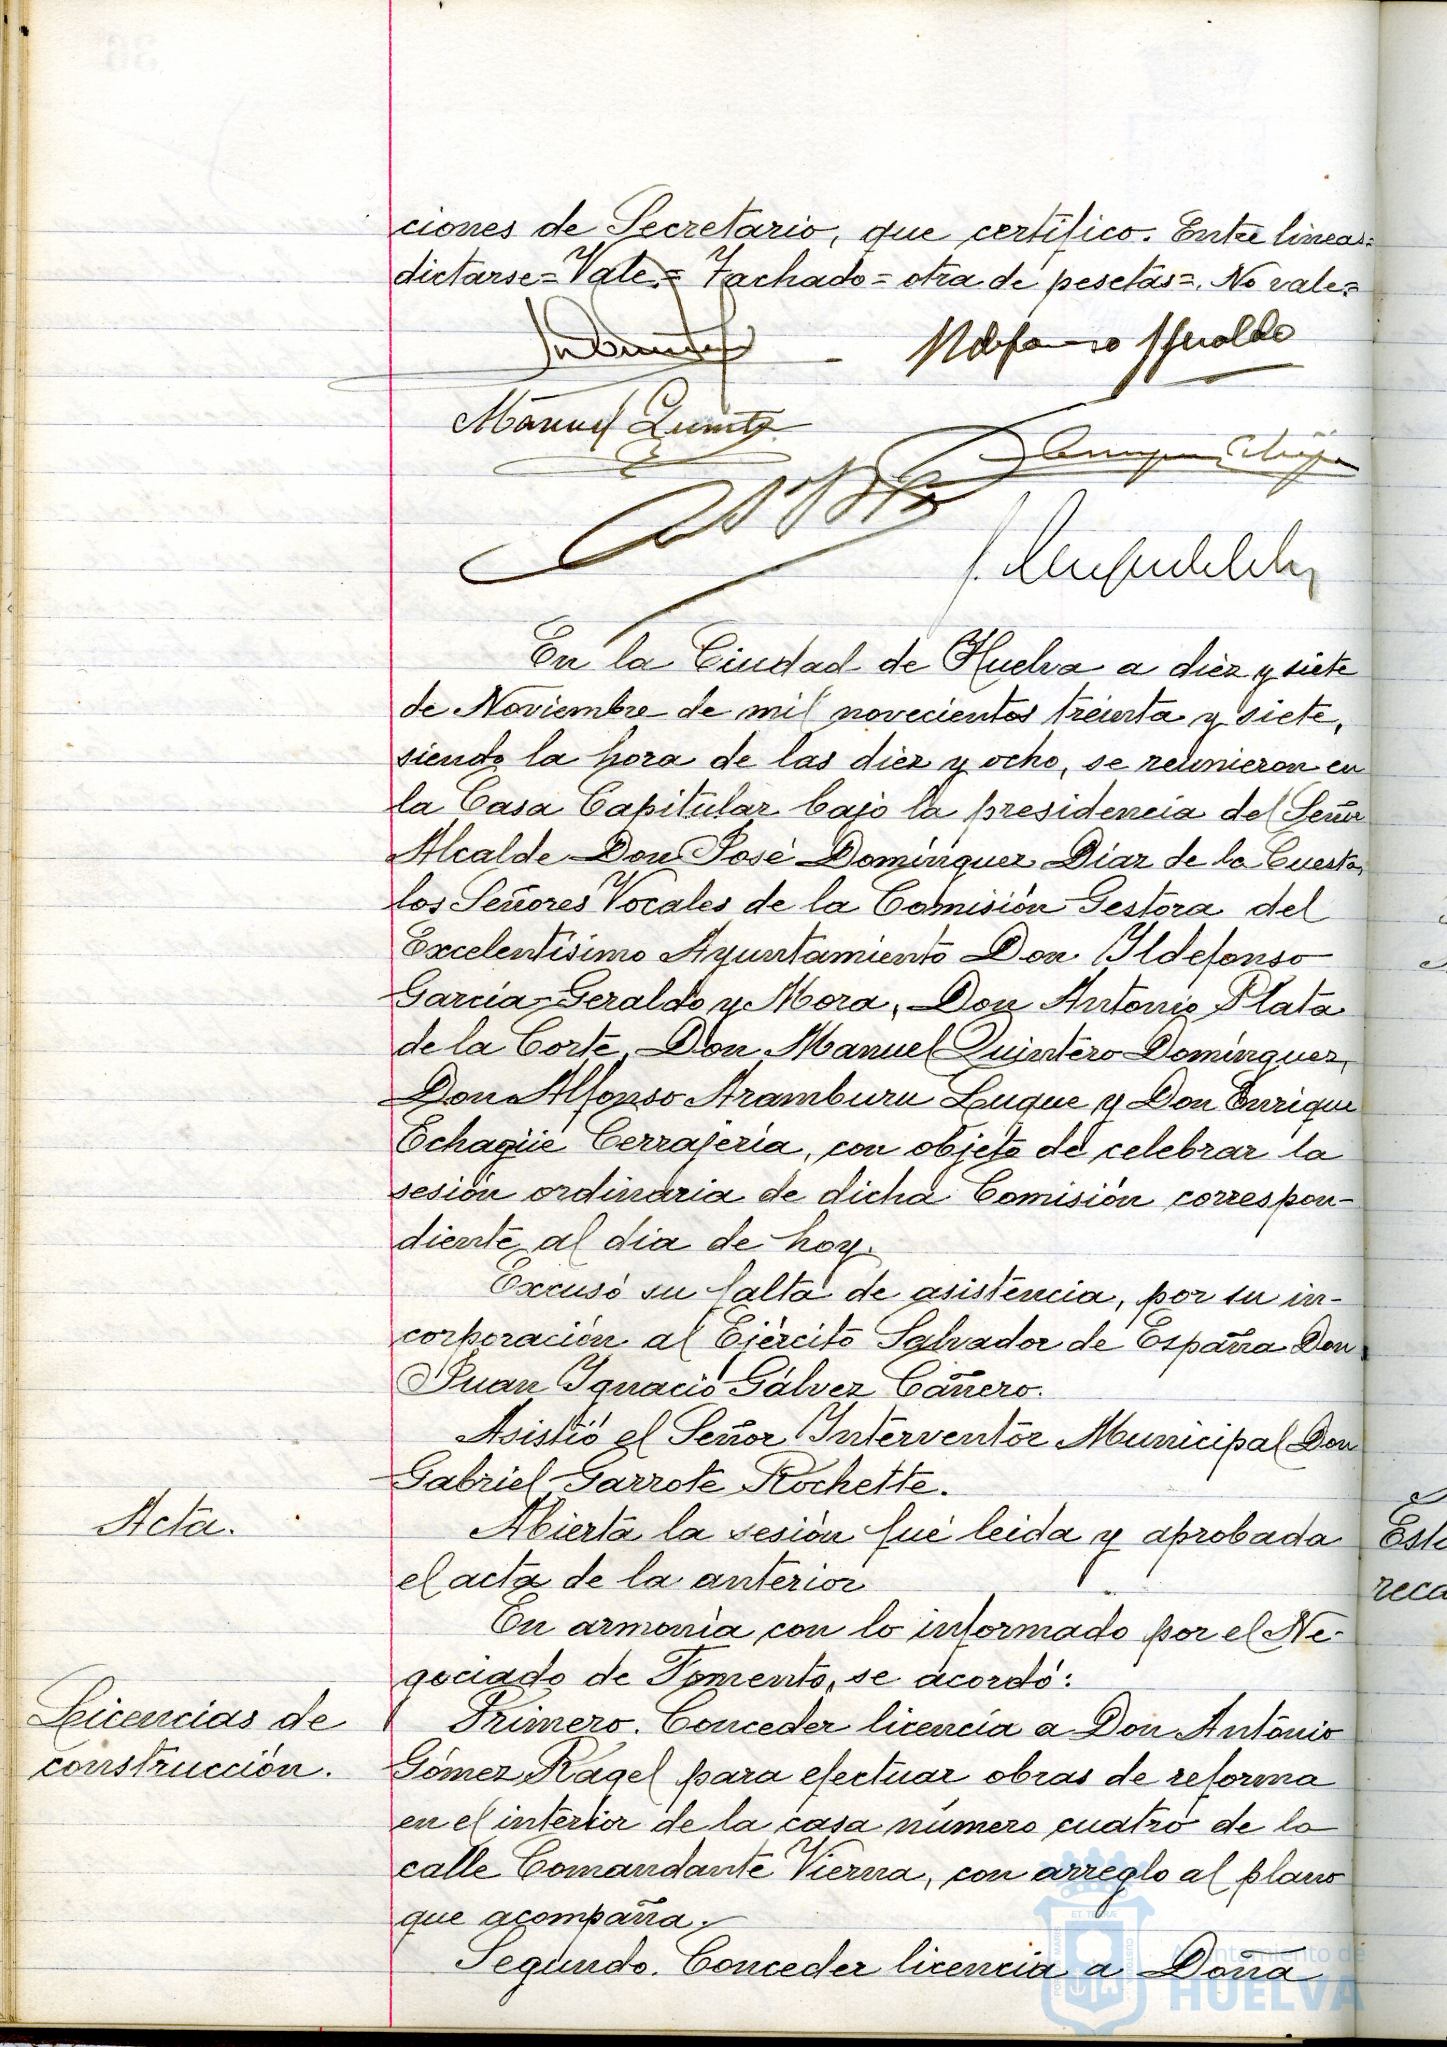 ciones de Secretario, que certifico. Entre lineas=
dictarse=Vale.= Tachado= otra de pesetas=. No vale=
Ildefonso Geraldo
Manuel Quintero
En la Ciudad de Huelva a diez y siete
de Noviembre de mil novecientos treinta y siete,
siendo la hora de las diez y ocho, se reunieron en
la Casa Capitular bajo la presidencia del Señor
Alcalde Don José Domínguez Díaz de la Cuesta,
los Señores Vocales de la Comisión Gestora del
Excelentísimo Ayuntamiento Don Ildefonso
García-Geraldo y Mora, Don Antonio Plata
de la Corte, Don Manuel Quintero Domínguez,
Don Alfonso Aramburu Luque y Don Enrique
Echagüe Cerrajería, con objeto de celebrar la
sesión ordinaria de dicha Comisión correspon-
diente al dia de hoy.
Excusó su falta de asistencia, por su in-
corporación al Ejército Salvador de España Don
Juan Ignacio Gálvez Cañero.
Asistió el Señor Interventor Municipal Don
Gabriel Garrote Rochette.
Acta.
Abierta la sesión fué leida y aprobada
el acta de la anterior
En armonía con lo informado por el Ne-
gociado de Fomento, se acordó:
Licencias de
construcción.
Primero. Conceder licencia a Don Antonio
Gómez Ragel para efectuar obras de reforma
en el interior de la casa número cuatro de la
calle Comandante Vierna, con arreglo al plano
que acompaña.
Segundo. Conceder licencia a Doña
Ayuntamiento de
HUELVA